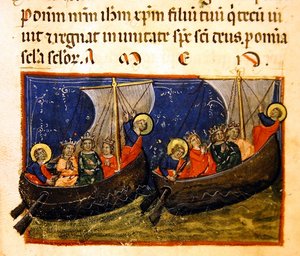 Dominum nrm ihm xpm filiū tuū q̄ tecū ui
uit ⁊ regnat in unitate sp̄s sc̄i deus. p om̄ia
sc̄la sc̄lor. A M E N